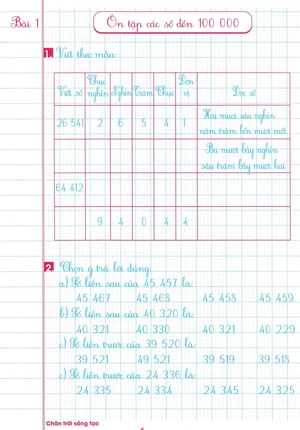 Bài 1
Ôn tập các số đến 100 000
1. Viết theo mẫu:
Viết số | Chục nghìn | Nghìn | Trăm | Chục | Đơn vị | Đọc số
26 541 | 2 | 6 | 5 | 4 | 1 | Hai mươi sáu nghìn
năm trăm bốn mươi mốt
Ba mươi bảy nghìn
sáu trăm bảy mươi hai
64 412
9 4 0 4
2. Chọn ý trả lời đúng:
a) Số liền sau của 45 457 là:
45 467 45 468 45 458 45 459
b) Số liền sau của 40 320 là:
40 321 40 330 40 321 40 229
c) Số liền trước của 39 520 là:
39 521 49 521 39 519 39 518
c) Số liền trước của 24 336 là:
24 335 24 334 24 345 24 325
Chân trời sáng tạo